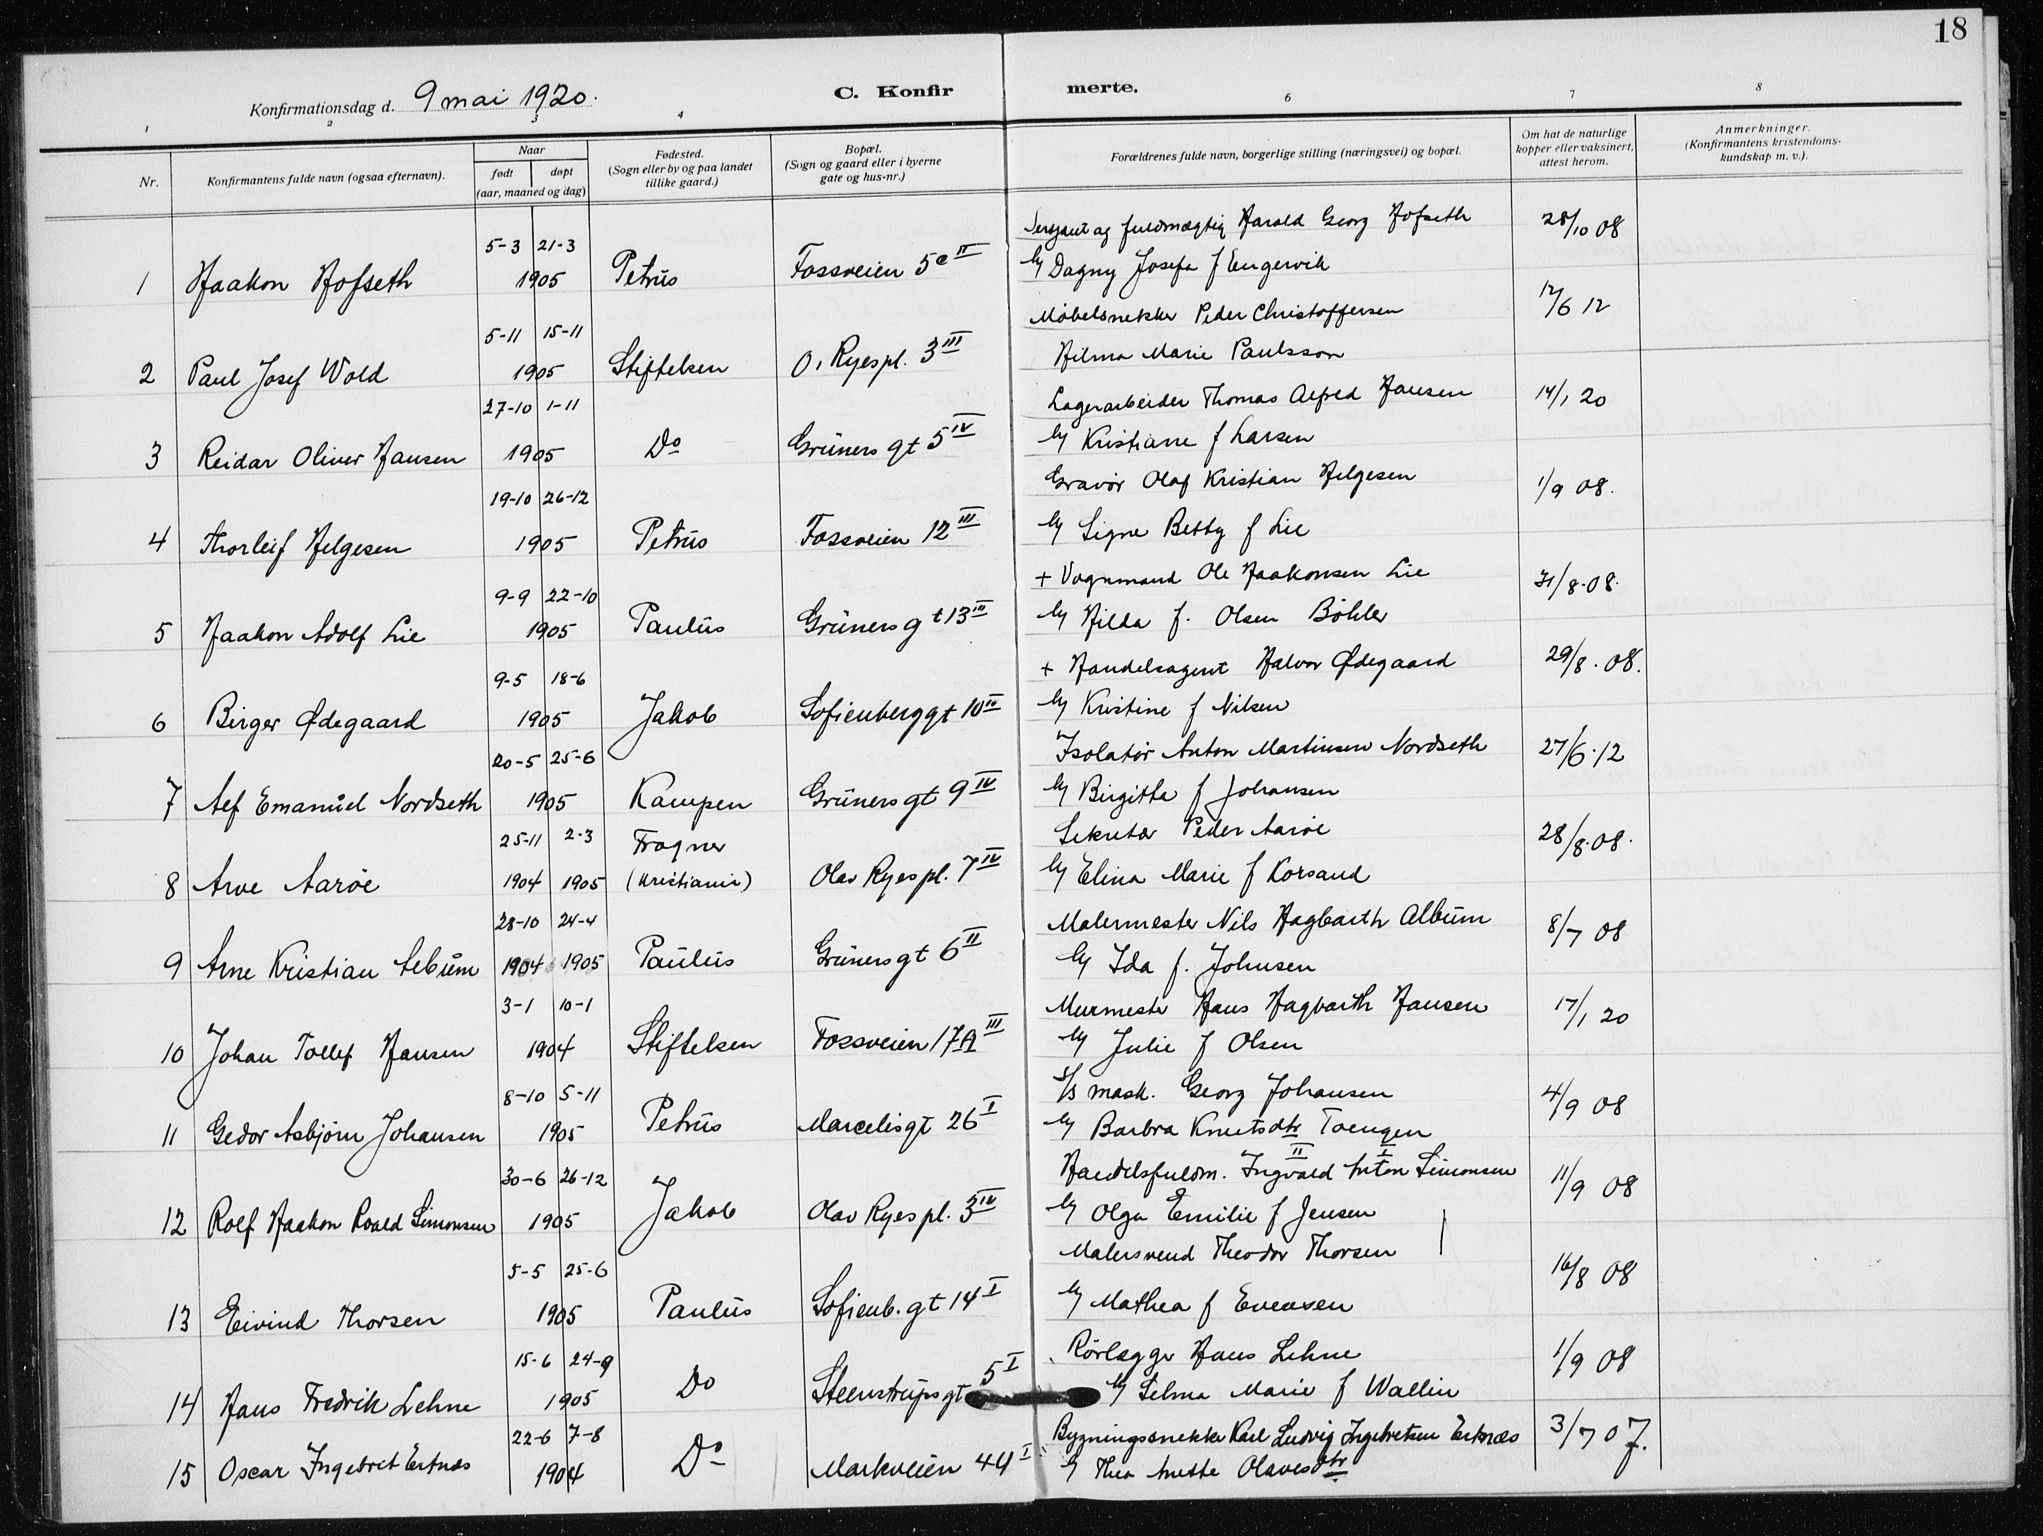 18
Konfirmationsdag d. 9 mai 1920.
C. Konfirmerte.
1 2 3 4 6 7 8
Nr.
Konfirmantens fulde navn (ogsaa efternavn).
Naar
født
døpt
(aar, maaned og dag)
Fødested.
(Sogn eller by og paa landet
tillike gaard.)
Bopæl.
(Sogn og gaard eller i byerne
gate og hus-nr.)
Forældrenes fulde navn, borgerlige stilling (næringsvei) og bopæl.
Om hat de naturlige
kopper eller vaksinert,
attest herom.
Anmerkninger.
(Konfirmantens kristendoms-
kundskap m. v.).
5-3 21-3 Sersjant og fuldmægtig Harald Georg Hofseth 28/10 08
1 Haakon Hofseth 1905 Petrus Fossveien 5c II Dagny Josefa f Engervik
5-11 15-11 Møbelsnekker Peder Christoffersen 12/6 12
2 Paul Josef Wold 1905 Stiftelsen O. Ryes pl. 3 III Hilma Marie Paulsson
27-10 1-11 Lagerarbeider Thomas Alfred Hansen 14/1 20
3 Reidar Oliver Hansen 1905 Do Grüners gt 5 IV Kristiane f Larsen
19-10 26-12 Gravør Olaf Kristian Helgesen 1/9 08.
4 Thorleif Helgesen 1905 Petrus Fossveien 12 III Signe Betty f Lie
9-9 22-10 + Vognmand Ole Haakonsen Lie 31/8. 08.
5 Haakon Adolf Lie 1905 Paulus Grüners gt 13 III Hilda f. Olsen Böhler
9-5 18-6 + Handelsagent Halvor Ødegaard 29/8. 08.
6 Birger Ødegaard 1905 Jakob Sofienberggt 10 IV Kristine f Nilsen
20-5 25-6 Isolatør Anton Martinsen Nordseth 27/6. 12
7 Alf Emanuel Nordseth 1905 Kampen Grüners gt 9 IV Birgitta f Johansen
25-11 2-3 Frogner Sekretær Peder Aarøe 28/8. 08.
8 Arve Aarøe 1904 1905 (Kristiania) Olav Ryes pl. 7 IV Elina Marie f Korsand
28-10 24-4 Malermester Nils Hagbarth Album 8/7 08
9 Arne Kristian Album 1904 1905 Paulus Grünersgt 6 II Ida f. Johnsen
3-1 10-1 Murmester Hans Hagbarth Hansen 17/1 20
10 Johan Tollef Hansen 1904 Stiftelsen Fossveien 17A III Julie f Olsen
8-10 5-11 mask. Georg Johansen 4/9 08
11 Gedor Asbjørn Johansen 1905 Petrus Marcelisgt 26 I Barbra Knutsdtr Toengen
30-6 26-12 Handelsfuldm. Ingvald II Anton I Simonsen 11/9 08
12 Rolf Haakon Roald Simonsen 1905 Jakob Olav Ryes pl. 3 IV Olga Emilie f Jensen
5-5 25-6 Malersvend Theodor Thorsen 16/8 08
13 Eivind Thorsen 1905 Paulus Sofienb. gt 14 I Mathea f Evensen
15-6 24-9 Rørlægger Hans Lehne 1/9 08
14 Hans Fredrik Lehne 1905 Do Steenstrupsgt 5 I Selma Marie f Wallin
22-6 7-8 Bygningssnekker Karl Ludvig Ingebretsen Ertnæs 3/7 07.
15 Oscar Ingebret Ertnæs 1904 Do Markveien 44 I Thea Anette Olavesdtr